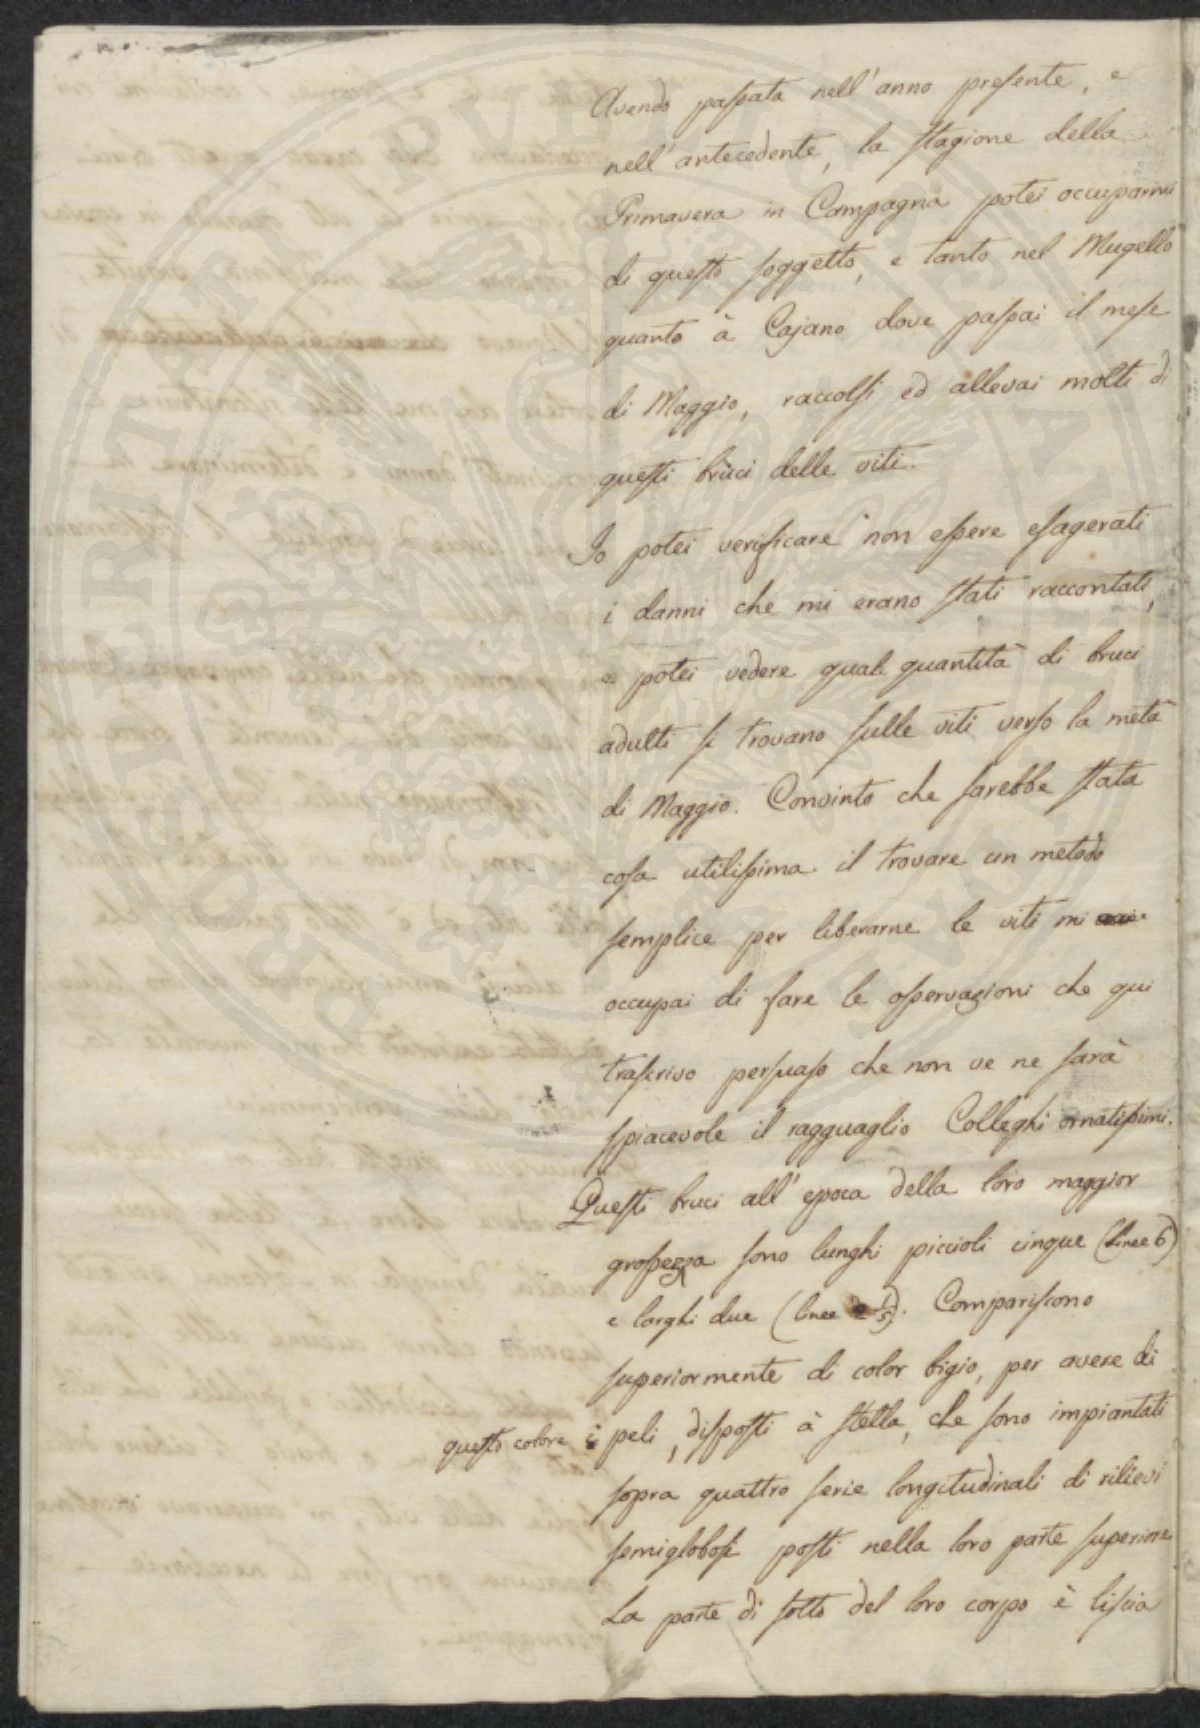 Avendo paſsata nell'anno preſente, e
nell'antecedente, la ſtagione della
Primavera in Campagna potei occuparmi
di queſto ſoggetto, e tanto nel Mugello
quanto à Cajano dove paſsai il meſe
di Maggio, raccolſi ed allevai molti di
queſti brùci delle viti.
Io potei verificare non eſsere eſagerati
i danni che mi erano ſtati raccontati,
e potei vedere quale quantità di bruci
adulti ſi trovano ſulle viti verſo la metà
di Maggio. Convinto che ſarebbe ſtata
coſa utiliſsima il trovare un metodo
ſemplice per liberarne le viti mi
occupai di fare le oſservazioni che qui
traſcrivo perſuaſo che non ve ne ſarà
ſpiacevole il ragguaglio Colleghi ornatiſsimi.
Queſti bruci all'epoca della loro maggior
groſsezza ſono lunghi piccioli cinque (linee 6)
e larghi due (linee 2 ⅕). Compariſcono
ſuperiormente di color bigio, per avere di
queſto colore i peli, diſpoſti à ſtella, che ſono impiantati
ſopra quattro ſerie longitudinali di rilievi
ſemigloboſi poſti nella loro parte ſuperiore
La parte di ſotto del loro corpo è liſcia
POLIPHILI
PVBLICAE VTILITATI